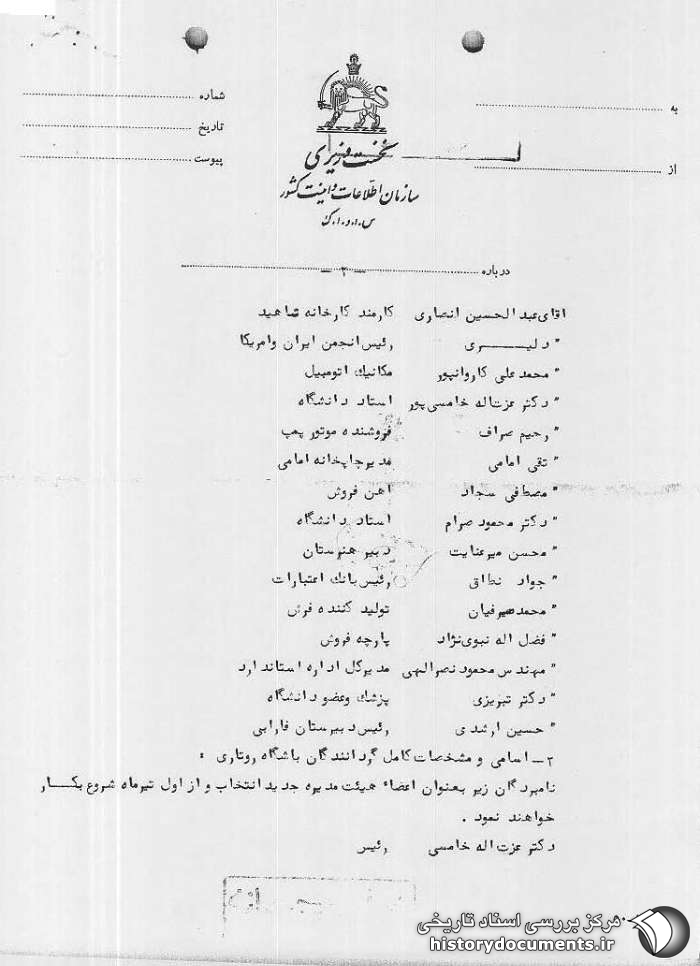 شماره
تاریخ
پیوست
به
از
نخست وزیری
سازمان اطلاعات و امنیت کشور
س.ا.و.ا.ک
درباره -۲-
اقای عبدالحسین انصاری کارمند کارخانه شاهید
" دلیـــری رئیس انجمن ایران وامریکا
" محمدعلی کاروانپور مکانیک اتومبیل
" دکتر عزت اله خامسی پور استاد دانشگاه
" رحیم صراف فروشنده موتور پمپ
" تقی امامی مدیرچاپخانه امامی
" مصطفی سجاد اهن فروش
" دکتر محمود صرام استاد دانشگاه
" محسن میرعنایت دبیر هنرستان
" جواد نطاق رئیس بانک اعتبارات
" محمد صیرفیان تولید کننده فرش
" فضل اله نبوی نژاد پارچه فروش
" مهندس محمود نصرالهی مدیرکل اداره استاندارد
" دکتر تبریزی پزشک وعضو دانشگاه
" حسین ارشدی رئیس دبیرستان فارابی
۲- اسامی و مشخصات کامل گردانندگان باشگاه روتاری :
نامبردگان زیر بعنوان اعضاء هیئت مدیره جدید انتخاب و از اول تیرماه شروع بکـــار
خواهند نمود .
دکتر عزت اله خامسی رئیس
مرکز بررسی اسناد تاریخی
historydocuments.ir